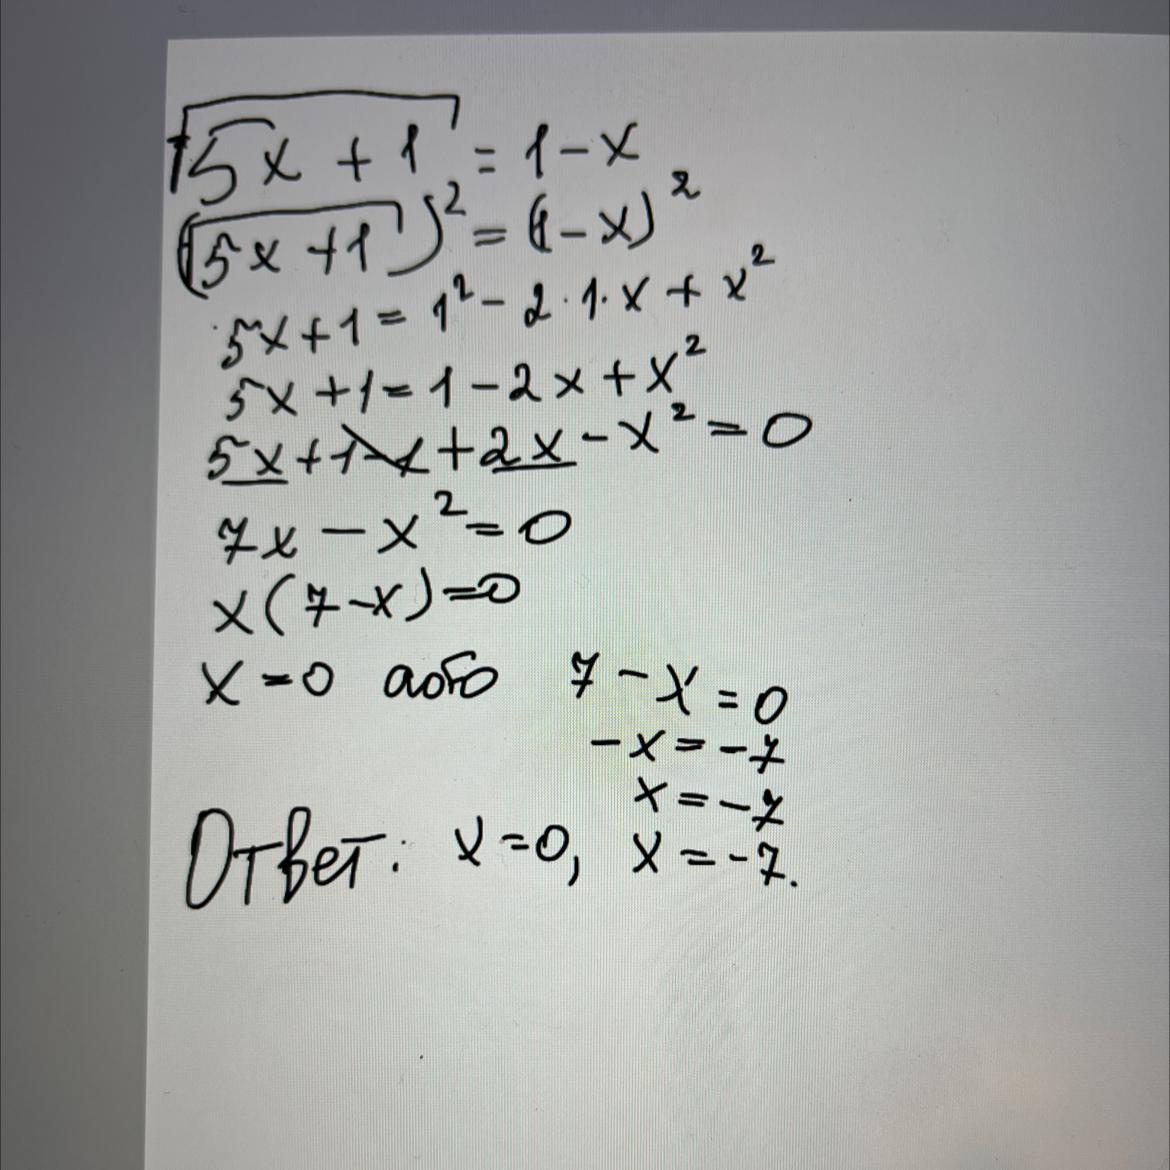 √5x + 1 = 1 - x
(√5x + 1)² = (1 - x)²
5x + 1 = 1² - 2 · 1 · x + x²
5x + 1 = 1 - 2x + x²
5x + 1 - 1 + 2x - x² = 0
7x - x² = 0
x(7 - x) = 0
x = 0 або 7 - x = 0
-x = -7
x = -7
Ответ: x = 0, x = -7.